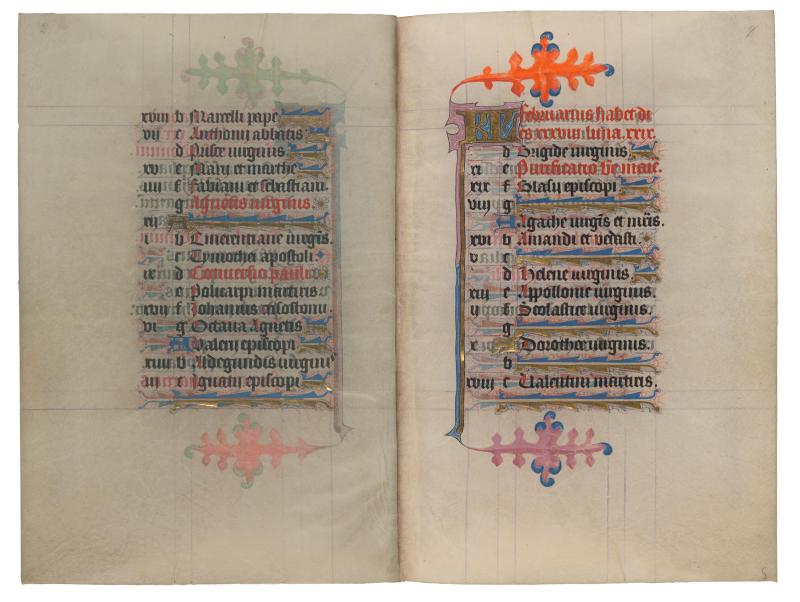 xviii b Marcelli pape
vii c Anthonii abbatis
d Prisce virginis
xv e Marii et marthe
iiii f Fabiani et sebastiani
g Agnetis virginis
xii A
i b Emerentiane virgis
c Tymothei apostoli
ix d Conversio pauli
e Policarpi martiris
xvii f Johannis crisostomi
vi g Octava Agnetis
A Valerii episcopi
xiiii b Aldegundis virginis
iii c Ignatii episcopi
KL Februarius habet di
es xxviii luna xxix
d Brigide virginis
xi e Purificatio be marie
xix f Blasii episcopi
viii g
A Agathe virgis et mris
xvi b Amandi et vedasti
v c
d Helene virginis
xiii e Appollonie virginis
ii f Scolastice virginis
g
x A Dorothee virginis
b
xviii c Valentini martiris